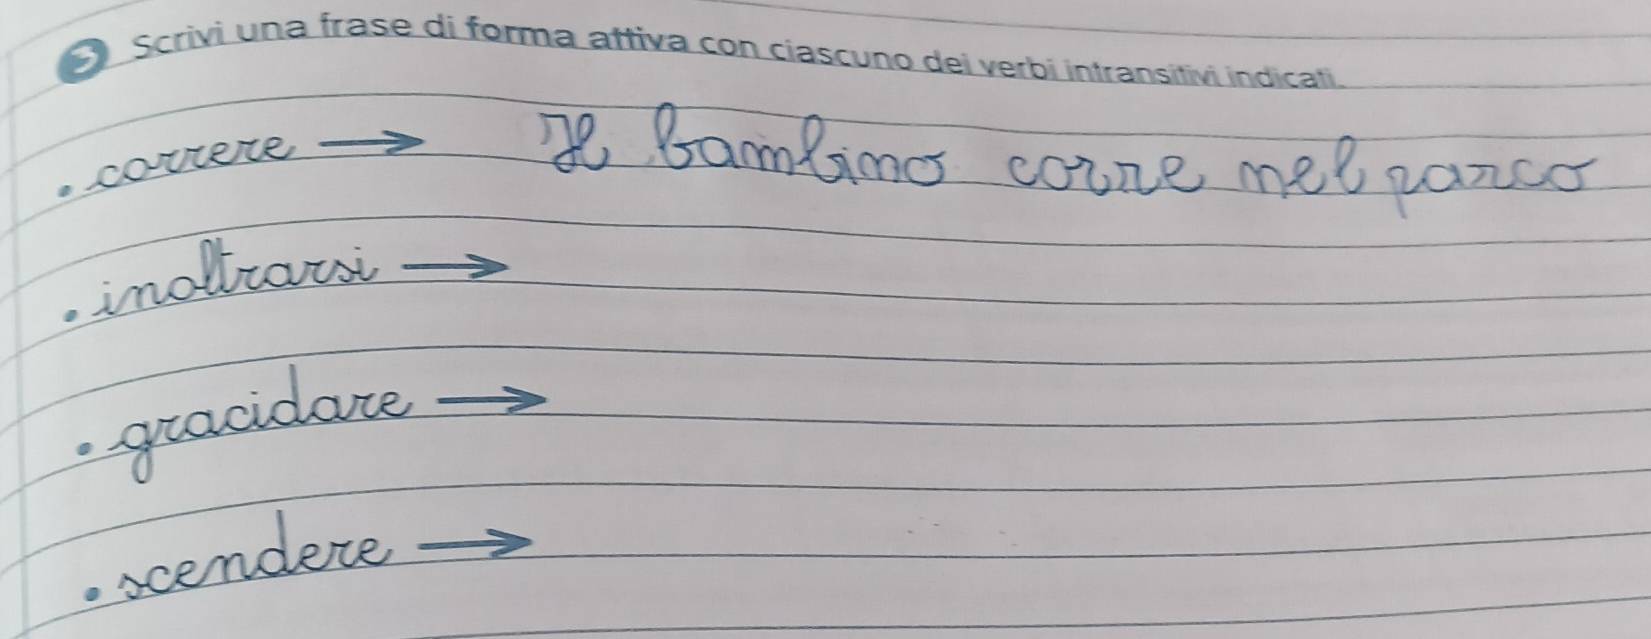 3 Scrivi una frase di forma attiva con ciascuno dei verbi intransitivi indicati.
• correre → Il bambino corre nel parco
• inoltrarsi →
• gracidare →
• scendere →